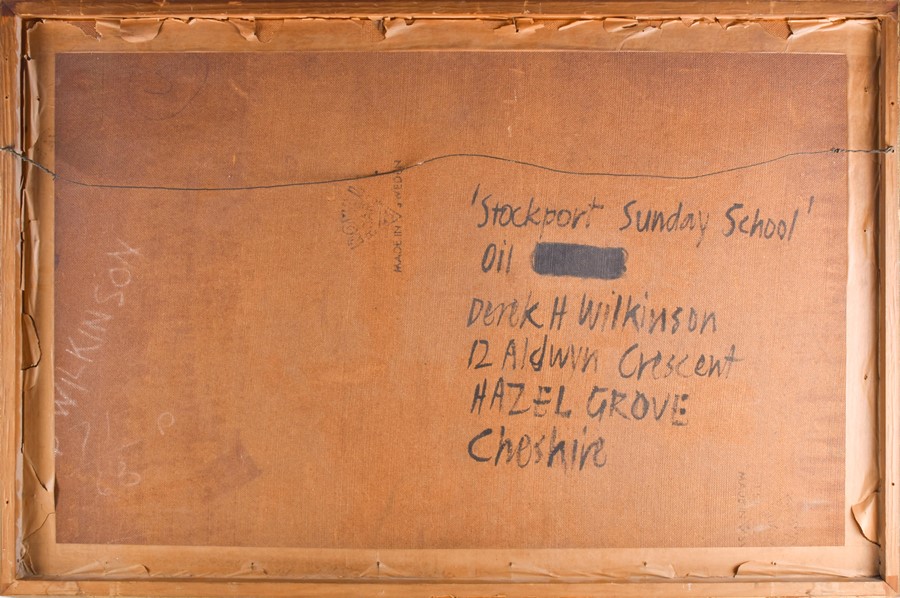 'Stockport Sunday School'
Oil
Derek H Wilkinson
12 Aldwyn Crescent
HAZEL GROVE
Cheshire
MADE IN SWEDEN
WILKINSON